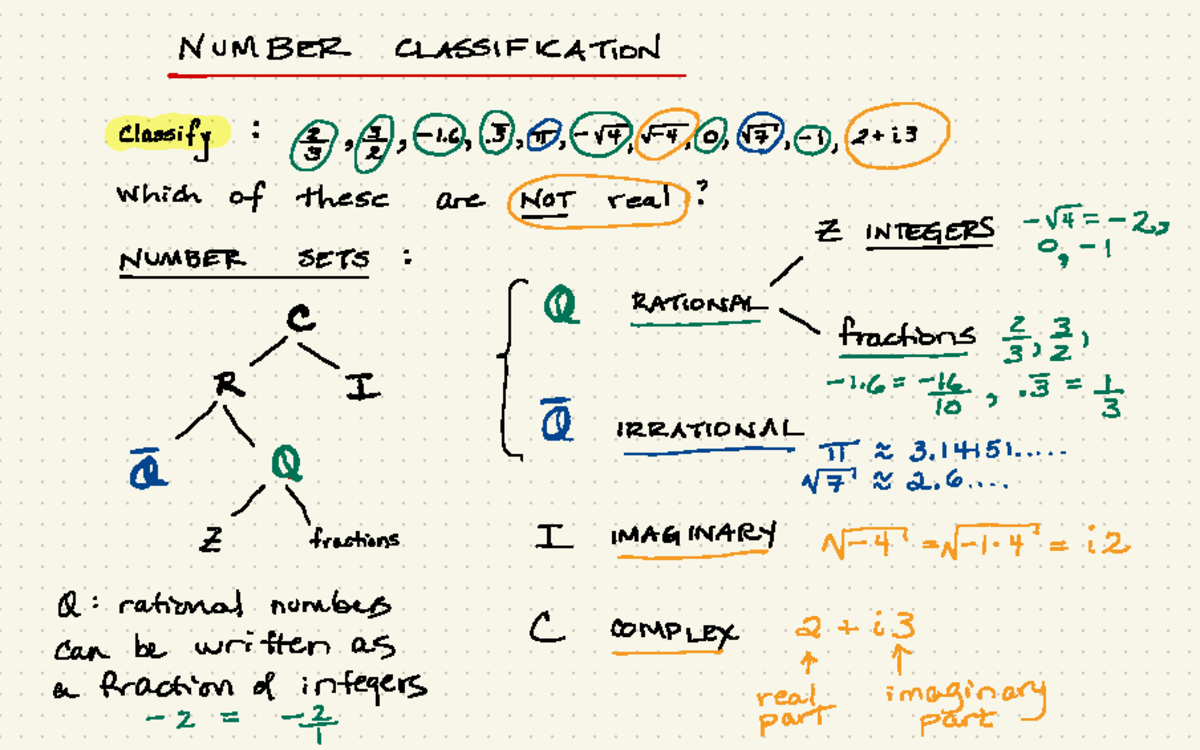 NUMBER CLASSIFICATION
Classify : 2/3, 3/2, -1.6, .3̅, π, -√4, √-4, 0, √7, -1, 2+i3
Which of these are NOT real?
NUMBER SETS :
C
R I
Q̅ Q
Z fractions
Q: rational numbers
can be written as
a fraction of integers
-2 = -2/1
Q RATIONAL
Z INTEGERS -√4 = -2,
0, -1
fractions 2/3, 3/2,
-1.6 = -16/10, .3̅ = 1/3
Q̅ IRRATIONAL
π ≈ 3.14151.....
√7 ≈ 2.6....
I IMAGINARY √-4 = √-1·4 = i2
C COMPLEX 2 + i3
↑ ↑
real imaginary
part part